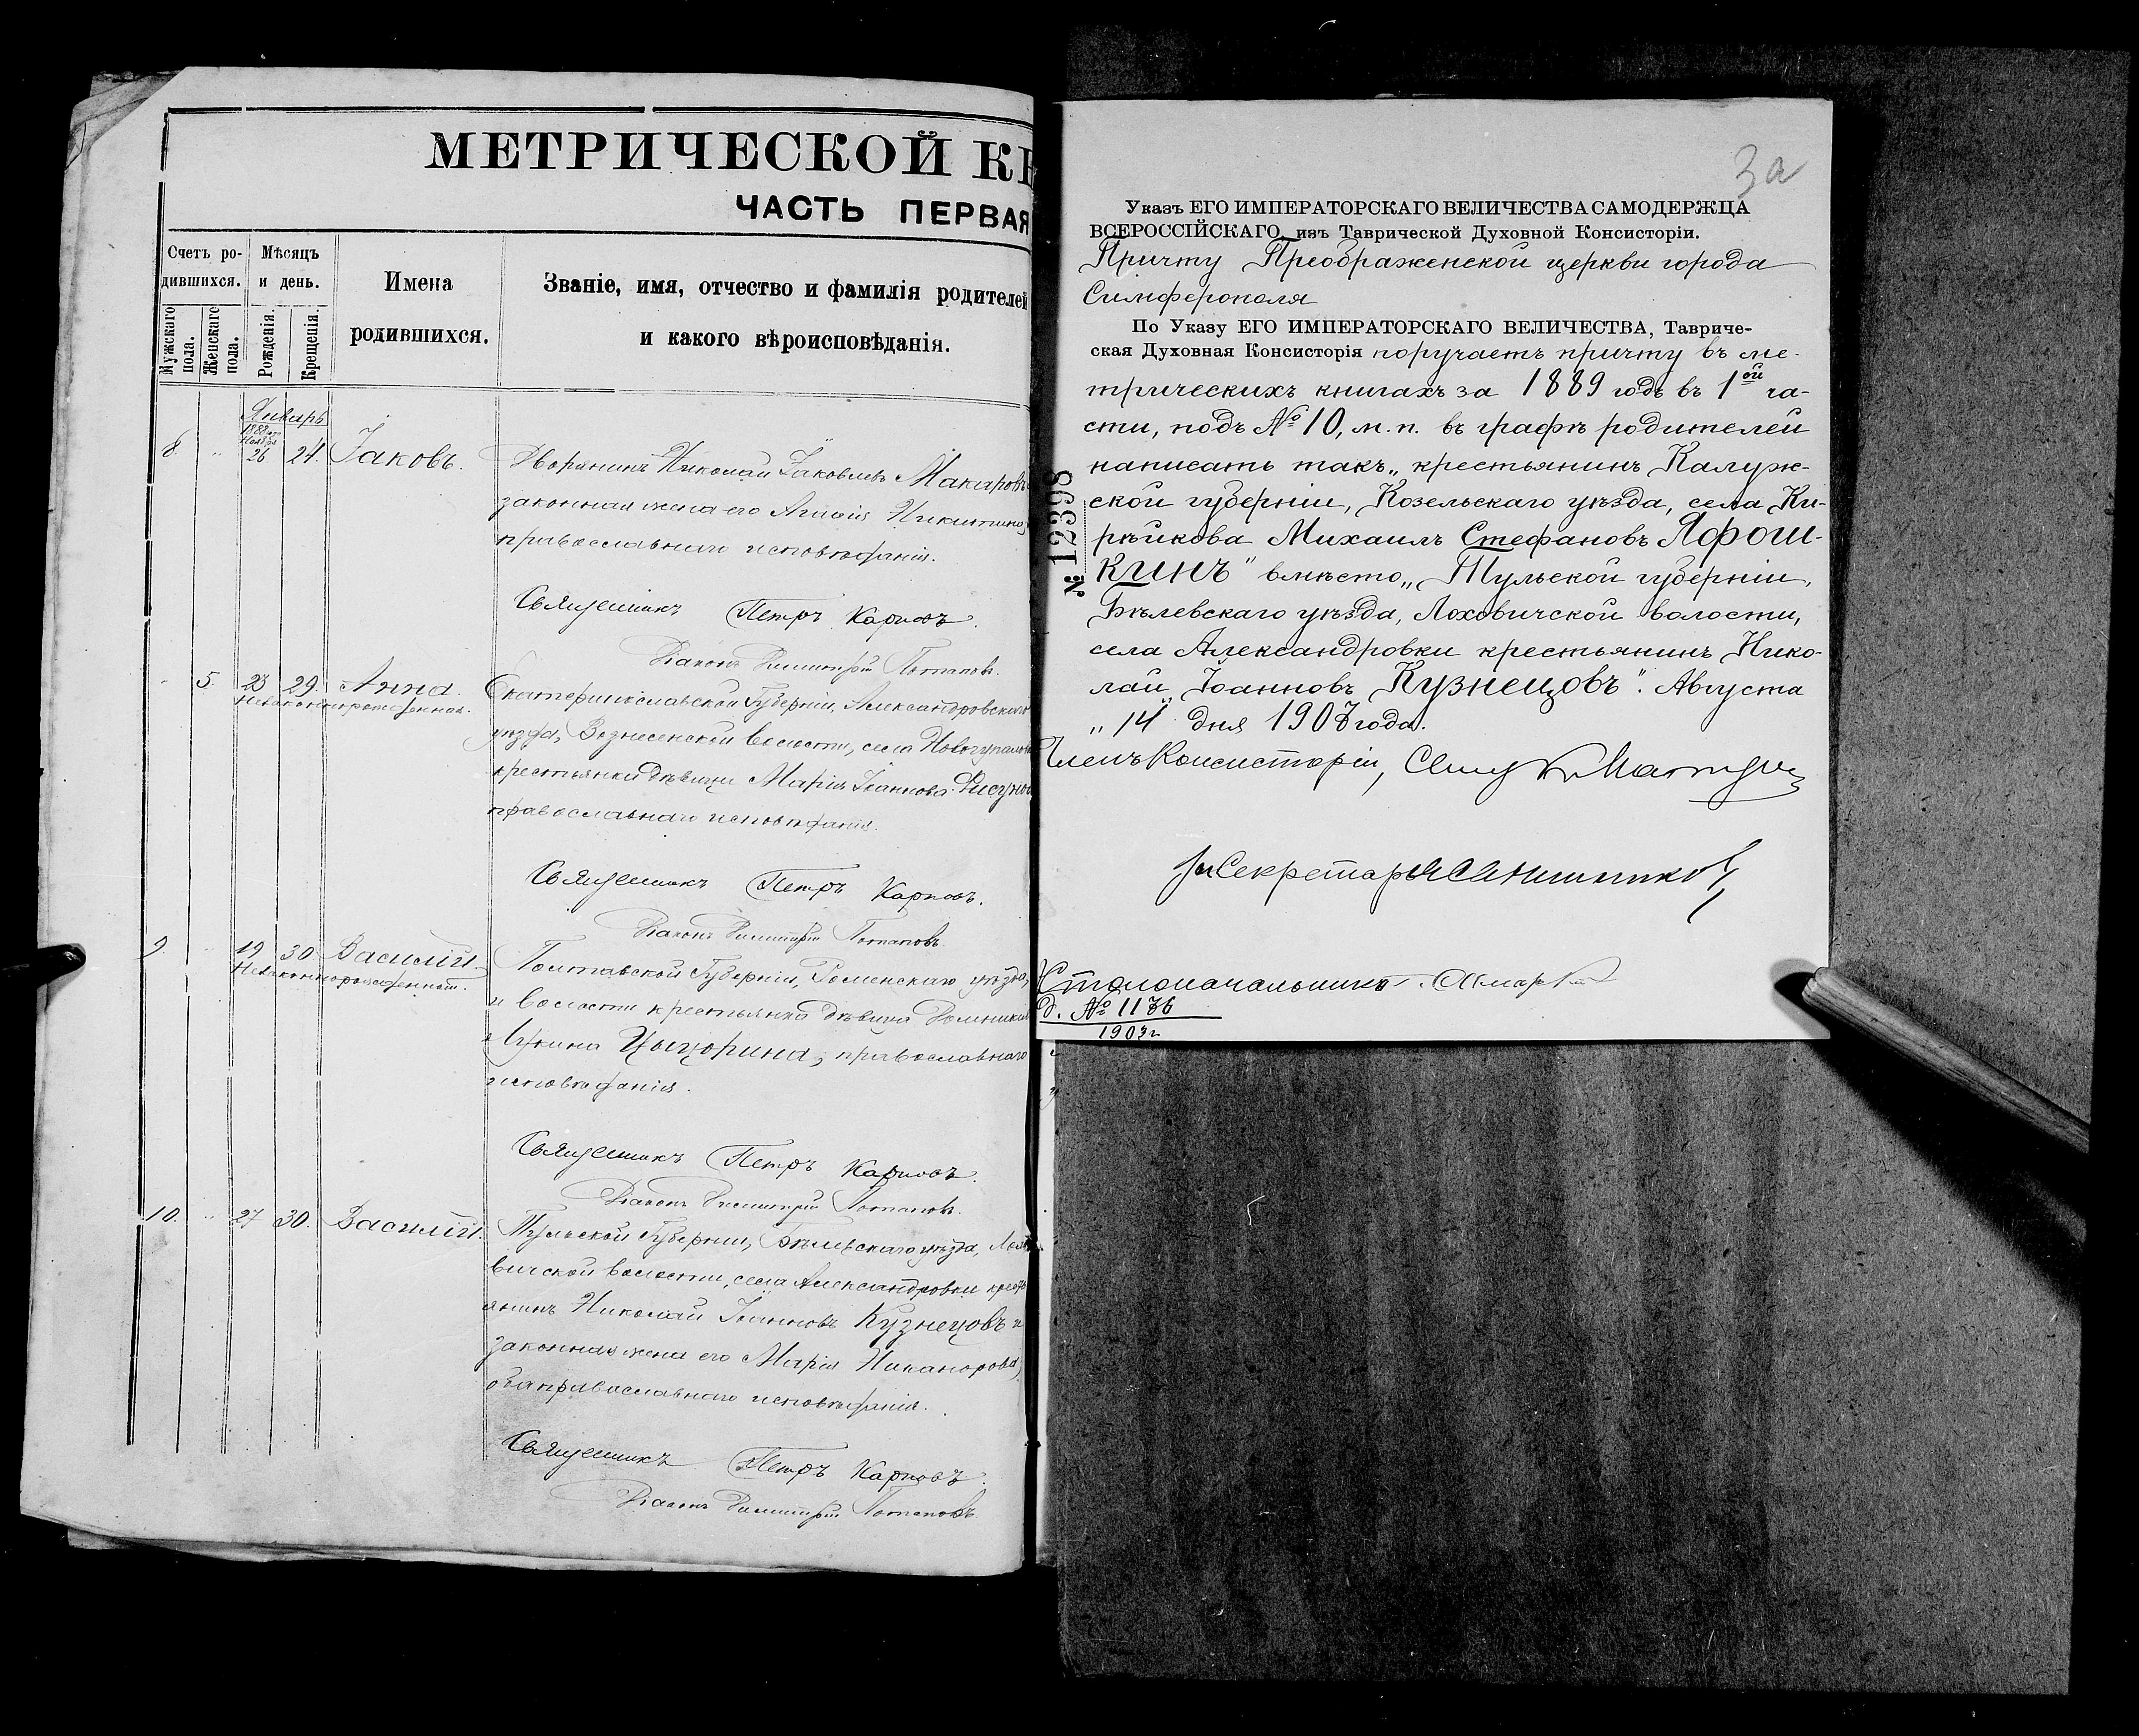 МЕТРИЧЕСКОЙ КН
ЧАСТЬ ПЕРВАЯ
Счетъ ро-
дившихся.
Мѣсяцъ
и день.
Имена
родившихся.
Званіе, имя, отчество и фамилія родителей
и какого вѣроисповѣданія.
Мужскаго
пола.
Женскаго
пола.
Рожденія.
Крещенія.
Январь
1888 года
Ноября
8 " 26 24. Іаковъ. Дворянинъ Николай Іаковлевъ Макаровъ
законная жена его Никитина,
православнаго исповѣданія.
Священникъ Петръ Карповъ.
Діаконъ Димитрій Потаповъ.
" 5. 23 29. Анна. Екатеринославской Губерніи, Александровскаго
Незаконнорожденная.
уѣзда, Вознесенской волости, села
крестьянки дѣвицы Марія Іоаннова
православнаго исповѣданія.
Священникъ Петръ Карповъ.
Діаконъ Димитрій Потаповъ.
9. " 19 30 Василій. Полтавской Губерніи, Роменскаго уѣзда,
Незаконнорожденный.
и волости крестьянка дѣвица
православнаго
исповѣданія.
Священникъ Петръ Карповъ.
Діаконъ Димитрій Потаповъ.
10. " 27 30. Василій. Тульской Губерніи, Бѣлевскаго уѣзда, Лохо
вичской волости, села Александровки крестъ
янинъ Николай Іоанновъ Кузнецовъ и
законная жена его Марія Никанорова,
оба православнаго исповѣданія.
Священникъ Петръ Карповъ.
Діаконъ Димитрій Потаповъ.
3а
Указъ ЕГО ИМПЕРАТОРСКАГО ВЕЛИЧЕСТВА САМОДЕРЖЦА
ВСЕРОССІЙСКАГО, изъ Таврической Духовной Консисторіи.
Причту Преображенской церкви города
Симферополя
По Указу ЕГО ИМПЕРАТОРСКАГО ВЕЛИЧЕСТВА, Тавриче-
ская Духовная Консисторія поручаетъ причту въ ме-
трическихъ книгахъ за 1889 годъ въ 1ой ча-
сти, подъ № 10, м. п. въ графѣ родителей
написать такъ „крестьянинъ Калуж-
ской губерніи, Козельскаго уѣзда, села Ки-
рѣйкова Михаилъ Стефановъ Яфош-
кинъ" вмѣсто „Тульской губерніи,
Бѣлевскаго уѣзда, Лоховичской волости,
села Александровки крестьянинъ Нико-
лай Іоанновъ Кузнецовъ". Августа
„14" дня 1903 года.
№ 12398
Членъ Консисторіи,
Секретаря
Столоначальникъ
д. № 1136
1903 г.